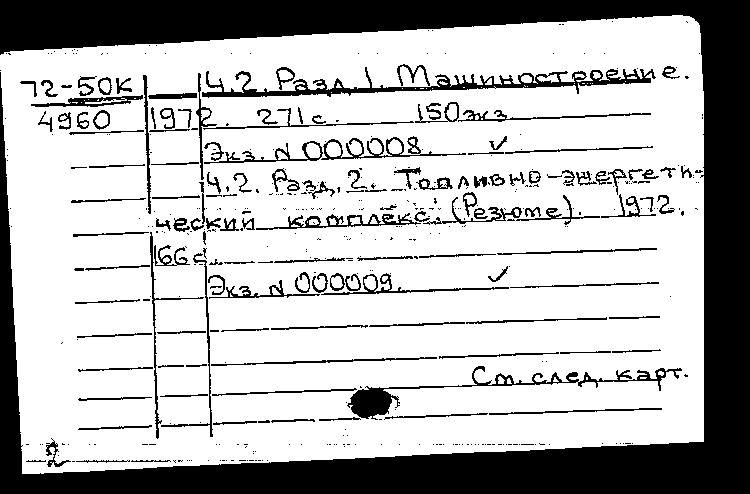 72-50К Ч.2. Разд. 1. Машиностроение.
4960 1972. 271 с. 150 экз
Экз. N 000008. ✓
Ч.2. Разд. 2. Топливно-энергети-
ческий комплекс. (Резюме). 1972.
166 с.
Экз. N 000009. ✓
См. след. карт.
2